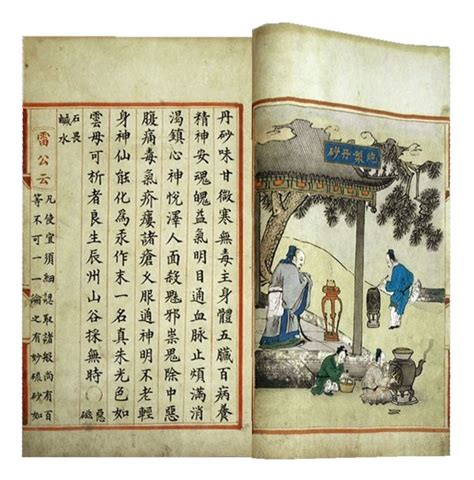 炮製丹砂
丹砂味甘微寒無毒主身體五臟百病養
精神安魂魄益氣明目通血脉止煩滿消
渴鎮心神悅澤人面殺魅邪祟鬼除中惡
腹痛毒氣疥瘻諸瘡久服通神明不老輕
身神仙能化為汞作末一名真朱光色如
雲母可析者良生辰州山谷採無時
惡
磁
石畏
鹹水
雷公云
凡使宜須細認取諸般尚有百
等不可一一論之有妙硫砂如